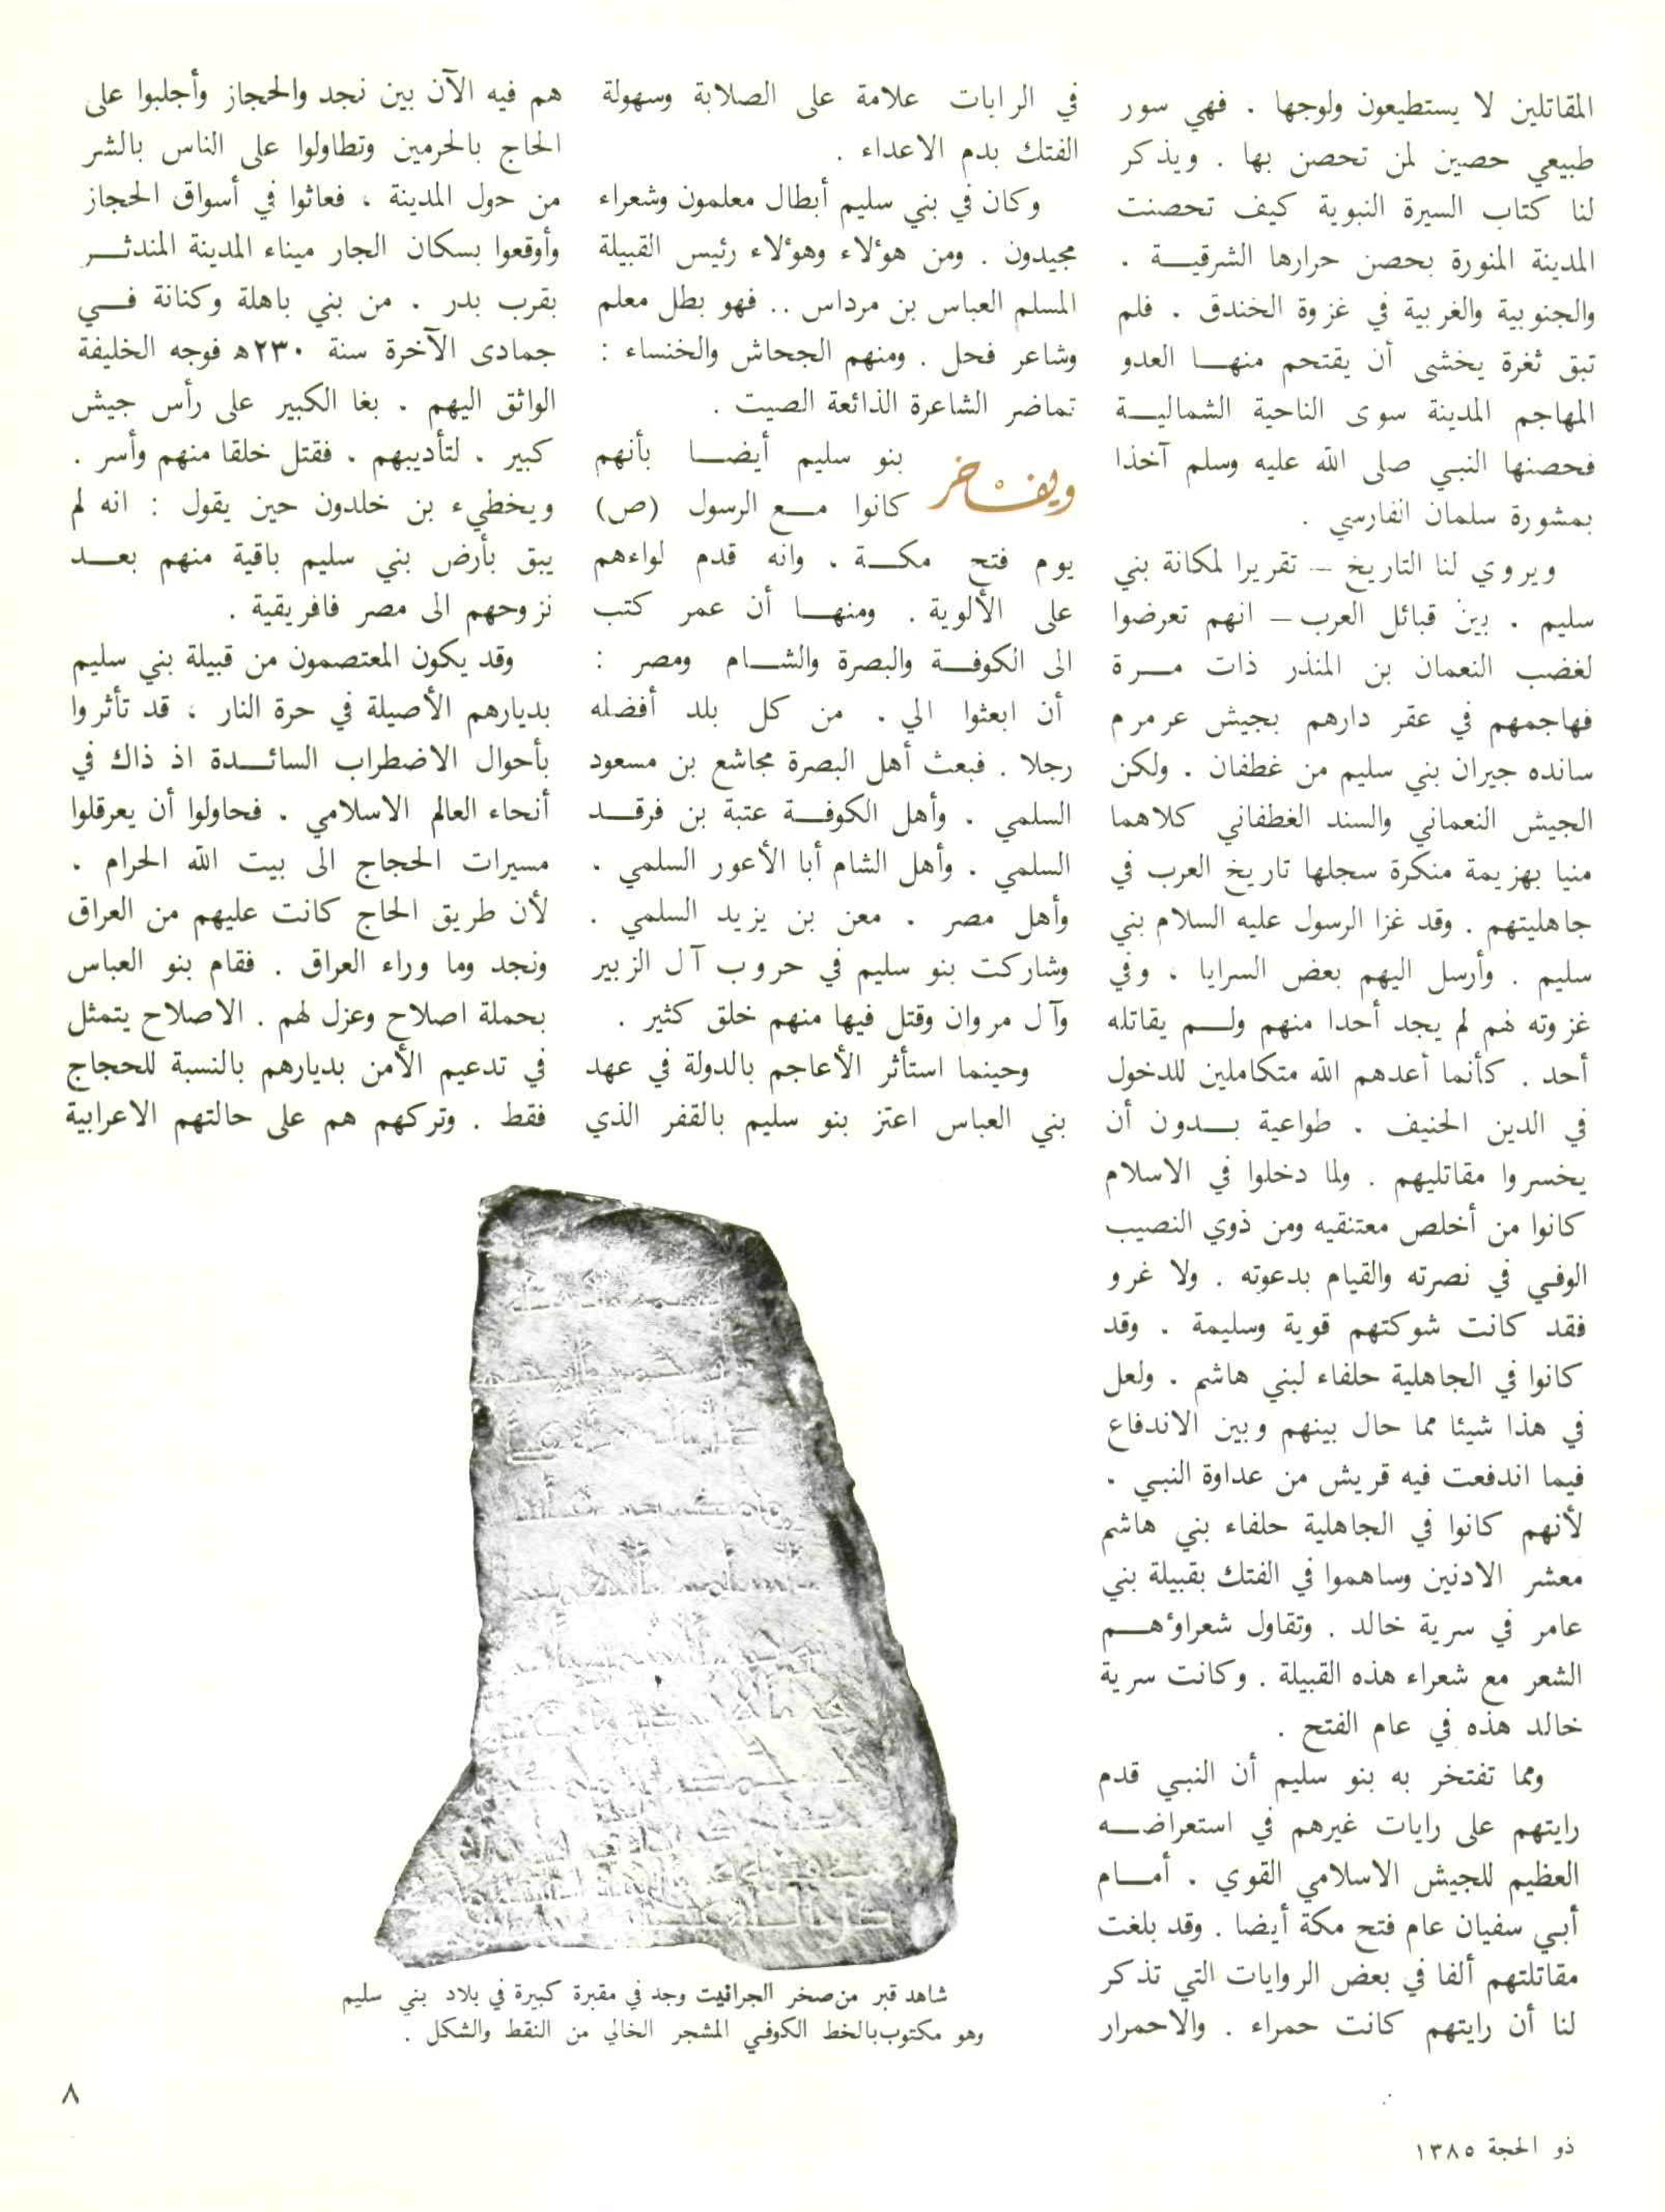 المقاتلين لا يستطيعون ولوجها . فهي سور
طبيعي حصين لمن تحصن بها . ويذكر
لنا كتاب السيرة النبوية كيف تحصنت
المدينة المنورة بحصن حرارها الشرقيـــة .
والجنوبية والغربية في غزوة الخندق . فلم
تبق ثغرة يخشى أن يقتحم منهـــا العدو
المهاجم المدينة سوى الناحية الشماليـــة
فحصنها النبي صلى الله عليه وسلم آخذا
بمشورة سلمان الفارسي .
ويروي لنا التاريخ – تقريرا لمكانة بني
سليم . بين قبائل العرب – انهم تعرضوا
لغضب النعمان بن المنذر ذات مـــرة
فهاجمهم في عقر دارهم بجيش عرمرم
سانده جيران بني سليم من غطفان . ولكن
الجيش النعماني والسند الغطفاني كلاهما
منيا بهزيمة منكرة سجلها تاريخ العرب في
جاهليتهم . وقد غزا الرسول عليه السلام بني
سليم . وأرسل اليهم بعض السرايا . وفي
غزوته لهم لم يجد أحدا منهم ولـــم يقاتله
أحد . كأنما أعدهم الله متكاملين للدخول
في الدين الحنيف . طواعية بـــدون أن
يخسروا مقاتليهم . ولما دخلوا في الاسلام
كانوا من أخلص معتنقيه ومن ذوي النصيب
الوفي في نصرته والقيام بدعوته . ولا غرو
فقد كانت شوكتهم قوية وسليمة . وقد
كانوا في الجاهلية حلفاء لبني هاشم . ولعل
في هذا شيئا مما حال بينهم وبين الاندفاع
فيما اندفعت فيه قريش من عداوة النبي .
لأنهم كانوا في الجاهلية حلفاء بني هاشم
معشر الادنين وساهموا في الفتك بقبيلة بني
عامر في سرية خالد . وتقاول شعراؤهـــم
الشعر مع شعراء هذه القبيلة . وكانت سرية
خالد هذه في عام الفتح .
ومما تفتخر به بنو سليم أن النبي قدم
رايتهم على رايات غيرهم في استعراضـــه
العظيم للجيش الاسلامي القوي . أمـــام
أبي سفيان عام فتح مكة أيضا . وقد بلغت
مقاتلتهم ألفا في بعض الروايات التي تذكر
لنا أن رايتهم كانت حمراء . والاحمرار
في الرايات علامة على الصلابة وسهولة
الفتك بدم الاعداء .
وكان في بني سليم أبطال معلمون وشعراء
مجيدون . ومن هؤلاء وهؤلاء رئيس القبيلة
المسلم العباس بن مرداس .. فهو بطل معلم
وشاعر فحل . ومنهم الجحاش والخنساء :
تماضر الشاعرة الذائعة الصيت .
ويفاخر بنو سليم أيضـــا بأنهم
كانوا مـــع الرسول (ص)
يوم فتح مكـــة . وانه قدم لواءهم
على الألوية . ومنهـــا أن عمر كتب
الى الكوفـــة والبصرة والشـــام ومصر :
أن ابعثوا الي . من كل بلد أفضله
رجلا . فبعث أهل البصرة مجاشع بن مسعود
السلمي . وأهل الكوفـــة عتبة بن فرقـــد
السلمي . وأهل الشام أبا الأعور السلمي .
وأهل مصر . معن بن يزيد السلمي .
وشاركت بنو سليم في حروب آل الزبير
وآل مروان وقتل فيها منهم خلق كثير .
وحينما استأثر الأعاجم بالدولة في عهد
بني العباس اعتز بنو سليم بالقفر الذي
هم فيه الآن بين نجد والحجاز وأجلبوا على
الحاج بالحرمين وتطاولوا على الناس بالشر
من حول المدينة ، فعاثوا في أسواق الحجاز
وأوقعوا بسكان الجار ميناء المدينة المندثـــر
بقرب بدر . من بني باهلة وكنانة فـــي
جمادى الآخرة سنة ٢٣٠ه فوجه الخليفة
الواثق اليهم . بغا الكبير على رأس جيش
كبير . لتأديبهم . فقتل خلقا منهم وأسر .
ويخطيء بن خلدون حين يقول : انه لم
يبق بأرض بني سليم باقية منهم بعـــد
نزوحهم الى مصر فافريقية .
وقد يكون المعتصمون من قبيلة بني سليم
بديارهم الأصيلة في حرة النار ، قد تأثروا
بأحوال الاضطراب السائـــدة اذ ذاك في
أنحاء العالم الاسلامي . فحاولوا أن يعرقلوا
مسيرات الحجاج الى بيت الله الحرام .
لأن طريق الحاج كانت عليهم من العراق
ونجد وما وراء العراق . فقام بنو العباس
بحملة اصلاح وعزل لهم . الاصلاح يتمثل
في تدعيم الأمن بديارهم بالنسبة للحجاج
فقط . وتركهم هم على حالتهم الاعرابية
شاهد قبر من صخر الجرانيت وجد في مقبرة كبيرة في بلاد بني سليم
وهو مكتوب بالخط الكوفي المشجر الخالي من النقط والشكل .
٨
ذو الحجة ١٣٨٥